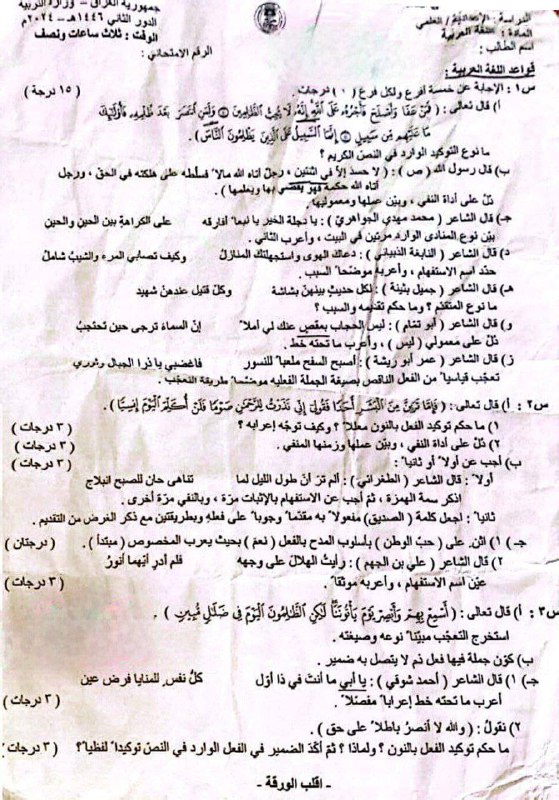 جمهورية العراق – وزارة التربية
الدور الثاني ١٤٤٦هـ – ٢٠٢٤م
الوقت : ثلاث ساعات ونصف
الرقم الامتحاني :
الدراسة : الإعدادية / العلمي
المادة : اللغة العربية
اسم الطالب :
قواعد اللغة العربية :
س١ : الإجابة عن خمسة أفرع ولكل فرع ( ) درجات . ( ١٥ درجة )
أ) قال تعالى : ( فَمَنْ عَفَا وَأَصْلَحَ فَأَجْرُهُ عَلَى اللَّهِ إِنَّهُ لَا يُحِبُّ الظَّالِمِينَ وَلَمَنِ انْتَصَرَ بَعْدَ ظُلْمِهِ فَأُولَٰئِكَ
مَا عَلَيْهِمْ مِنْ سَبِيلٍ إِنَّمَا السَّبِيلُ عَلَى الَّذِينَ يَظْلِمُونَ النَّاسَ ) .
ما نوع التوكيد الوارد في النصّ الكريم ؟
ب) قال رسول الله ( ص ) : ( لا حسدَ إلاّ في اثنتين ، رجلٌ آتاه الله مالاً فسلّطه على هلكته في الحق ، ورجل
آتاه الله حكمة فهو يقضي بها ويعلمها ) .
دُلّ على أداة النفي ، وبيّن عملها ومعموليها .
جـ) قال الشاعر ( محمد مهدي الجواهري ) : يا دجلة الخير يا نبعاً أفارقه على الكراهة بين الحين والحين
بيّن نوع المنادى الوارد مرتين في البيت ، وأعرب الثاني .
د) قال الشاعر ( النابغة الذبياني ) : دعاك الهوى واستجهلتك المنازلُ وكيف تصابي المرء والشيبُ شاملُ
حدّد اسم الاستفهام ، وأعربه موضحاً السبب .
هـ) قال الشاعر ( جميل بثينة ) : لكل حديثٍ بينهنّ بشاشة وكلّ قتيل عندهنّ شهيد
ما نوع المتقدم ؟ وما حكم تقديمه والسبب ؟
و) قال الشاعر ( أبو تمّام ) : ليس الحجاب بمقصٍ عنك لي أملاً إنّ السماءَ ترجى حين تحتجبُ
دُلّ على معمولي ( ليس ) ، وأعرب ما تحته خط .
ز) قال الشاعر ( عمر أبو ريشة ) : أصبح السفح ملعباً للنسور فاغضبي يا ذرا الجبال وثوري
تعجّب قياسياً من الفعل الناقص بصيغة الجملة الفعليه موضحاً طريقة التعجّب .
س٢ : أ) قال تعالى : ( فَإِمَّا تَرَيِنَّ مِنَ الْبَشَرِ أَحَدًا فَقُولِي إِنِّي نَذَرْتُ لِلرَّحْمَٰنِ صَوْمًا فَلَنْ أُكَلِّمَ الْيَوْمَ إِنْسِيًّا ) .
١) ما حكم توكيد الفعل بالنون معللاً ؟ وكيف توجّه إعرابه ؟ ( ٣ درجات )
٢) دُلّ على أداة النفي ، وبيّن عملها وزمنها المنفي . ( ٣ درجات )
ب) أجب عن أولاً أو ثانياً : ( ٣ درجات )
أولاً : قال الشاعر ( الطغرائي ) : ألم ترَ أنّ طول الليل لما تناهى حان للصبح انبلاج
اذكر سمة الهمزة ، ثم أجب عن الاستفهام بالإثبات مرّة ، وبالنفي مرّة أخرى .
ثانياً : اجعل كلمة ( الصديق ) مفعولاً به مقدّماً وجوباً على فعلهِ وبطريقتين مع ذكر الغرض من التقديم .
جـ) ١) اثنِ على ( حبّ الوطن ) بأسلوب المدح بالفعل ( نعمَ ) بحيث يعرب المخصوص ( مبتدأ ) . ( درجتان )
٢) قال الشاعر ( علي بن الجهم ) : رأيتُ الهلالَ على وجههِ فلم أدرِ أيّهما أنورُ
عيّن اسم الاستفهام ، وأعربه موثقاً . ( ٣ درجات )
س٣ : أ) قال تعالى : ( أَسْمِعْ بِهِمْ وَأَبْصِرْ يَوْمَ يَأْتُونَنَا لَٰكِنِ الظَّالِمُونَ الْيَوْمَ فِي ضَلَالٍ مُبِينٍ ) .
استخرج التعجّب مبيّناً نوعه وصيغته .
ب) كوّن جملة فيها فعل ذم لا يتصل به ضمير .
جـ) ١) قال الشاعر ( أحمد شوقي ) : يا أبي ما أنتَ في ذا أوّل كلُّ نفسٍ للمنايا فرض عين
أعرب ما تحته خط إعراباً مفصّلاً . ( ٣ درجات )
٢) نقولُ : ( والله لا أنصرُ باطلاً على حق ) .
ما حكم توكيد الفعل بالنون ؟ ولماذا ؟ ثمّ أكّد الضمير في الفعل الوارد في النصّ توكيداً لفظياً ؟ ( ٣ درجات )
- اقلب الورقة -